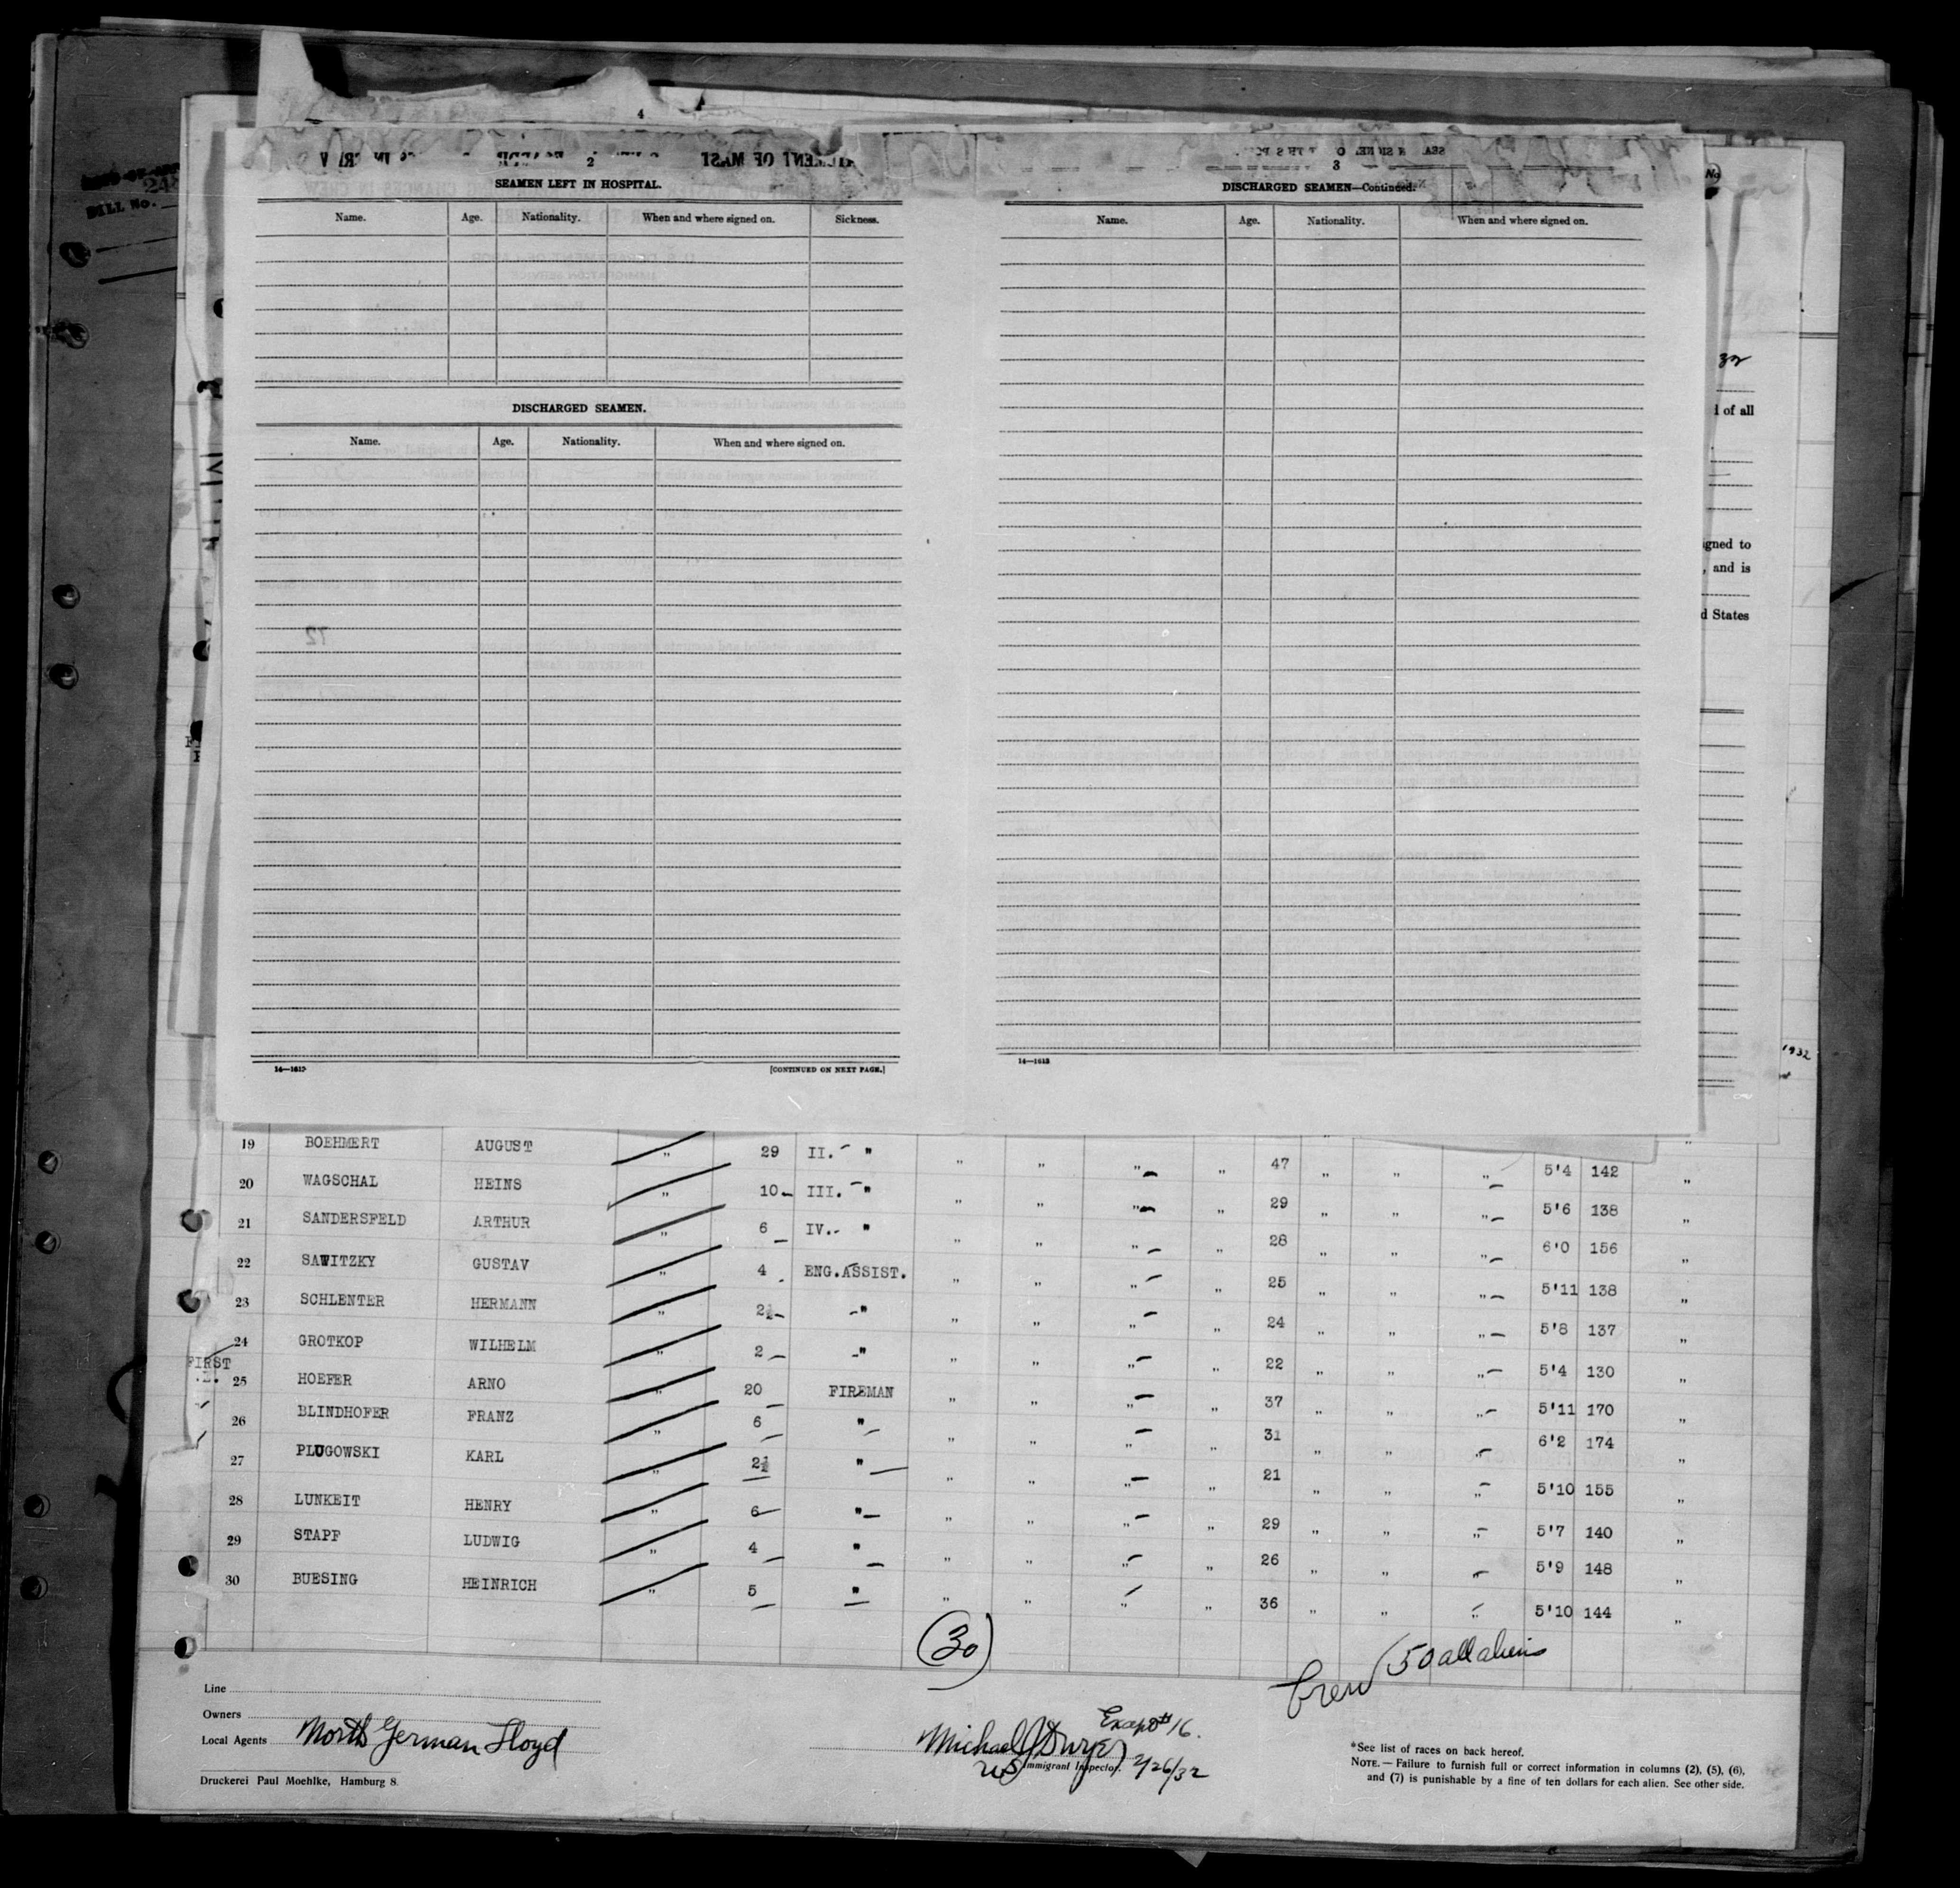 4
2
SEAMEN LEFT IN HOSPITAL.
Name. Age. Nationality. When and where signed on. Sickness.
DISCHARGED SEAMEN.
Name. Age. Nationality. When and where signed on.
[CONTINUED ON NEXT PAGE.]
3
DISCHARGED SEAMEN—Continued.
Name. Age. Nationality. When and where signed on.
BILL No.
No
32
of all
gned to
, and is
d States
1932
19 BOEHMERT AUGUST " 29 II. " " " " " 47 " " " 5'4 142 "
20 WAGSCHAL HEINS " 10 III. " " " " " 29 " " " 5'6 138 "
21 SANDERSFELD ARTHUR " 6 IV. " " " " " 28 " " " 6'0 156 "
22 SAWITZKY GUSTAV " 4 ENG.ASSIST. " " " " 25 " " " 5'11 138 "
23 SCHLENTER HERMANN " 2½ " " " " " 24 " " " 5'8 137 "
24 GROTKOP WILHELM " 2 " " " " " 22 " " " 5'4 130 "
FIRST
25 HOEFER ARNO " 20 FIREMAN " " " " 37 " " " 5'11 170 "
26 BLINDHOFER FRANZ " 6 " " " " " 31 " " " 6'2 174 "
27 PLUGOWSKI KARL " 2½ " " " " " 21 " " " 5'10 155 "
28 LUNKEIT HENRY " 6 " " " " " 29 " " " 5'7 140 "
29 STAPF LUDWIG " 4 " " " " " 26 " " " 5'9 148 "
30 BUESING HEINRICH " 5 " " " " " 36 " " " 5'10 144 "
(30)
Crew (50 all aliens
Line
Owners
Local Agents North German Lloyd
Druckerei Paul Moehlke, Hamburg 8.
Except #16.
Michael J Dwyer
US Immigrant Inspector. 2/26/32
*See list of races on back hereof.
NOTE.— Failure to furnish full or correct information in columns (2), (5), (6),
and (7) is punishable by a fine of ten dollars for each alien. See other side.